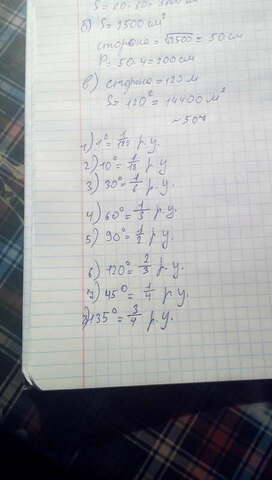 б) S=2500 см²
сторона = √2500 = 50 см
P=50·4=200 см
в) сторона = 120 м
S=120²=14400 м²
~507
1) 1°=1/180 р.у.
2) 10°=1/18 р.у.
3) 30°=1/6 р.у.
4) 60°=1/3 р.у.
5) 90°=1/2 р.у.
6) 120°=2/3 р.у.
7) 45°=1/4 р.у.
8) 135°=3/4 р.у.